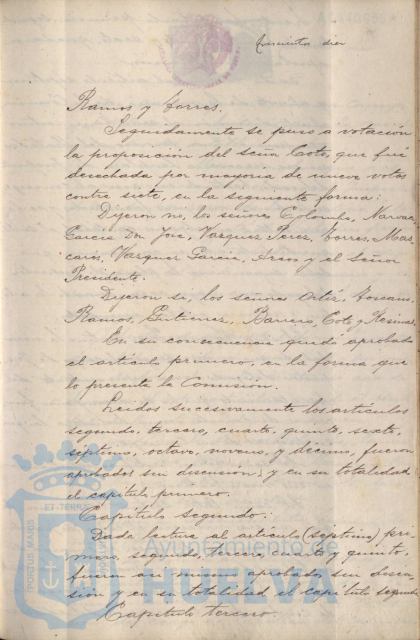 trescientos diez
Ramos y Torres.
Seguidamente se puso a votación
la proposición del señor Coto, que fué
desechada por mayoria de nueve votos
contra siete, en la siguiente forma:
Dijeron no, los señores Colombo, Narvaez,
Garcia Don José, Vazquez Perez, Torres, Mas-
carós, Vazquez Garcia, y el Señor
Presidente.
Dijeron si, los señores Ortiz, Toscano,
Ramos, Gutierrez, Barrero, Coto y
En su consecuencia quedó aprobado
el artículo primero, en la forma que
lo presenta la Comisión.
Leidos sucesivamente los artículos
segundo, tercero, cuarto, quinto, sexto,
septimo, octavo, noveno, y décimo, fueron
aprobados sin discusión, y en su totalidad
el capítulo primero.
Capítulo segundo:
Dada lectura al artículo (séptimo) pri-
mero, segundo, tercero, cuarto y quinto,
fueron asi mismo aprobados sin discu-
sión y en su totalidad el capítulo segundo
Capítulo tercero.
PORTUS MARIS
ET TERRAE
Ayuntamiento de
HUELVA